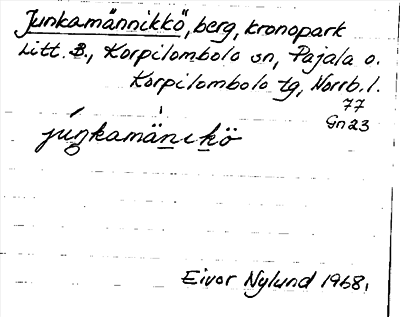 Junkamännikkö, berg, kronopark
Litt. B., Korpilombolo sn, Pajala o.
Korpilombolo tg, Norrb. l.
77
Gn23
júŋkamänikö
Eivor Nylund 1968.